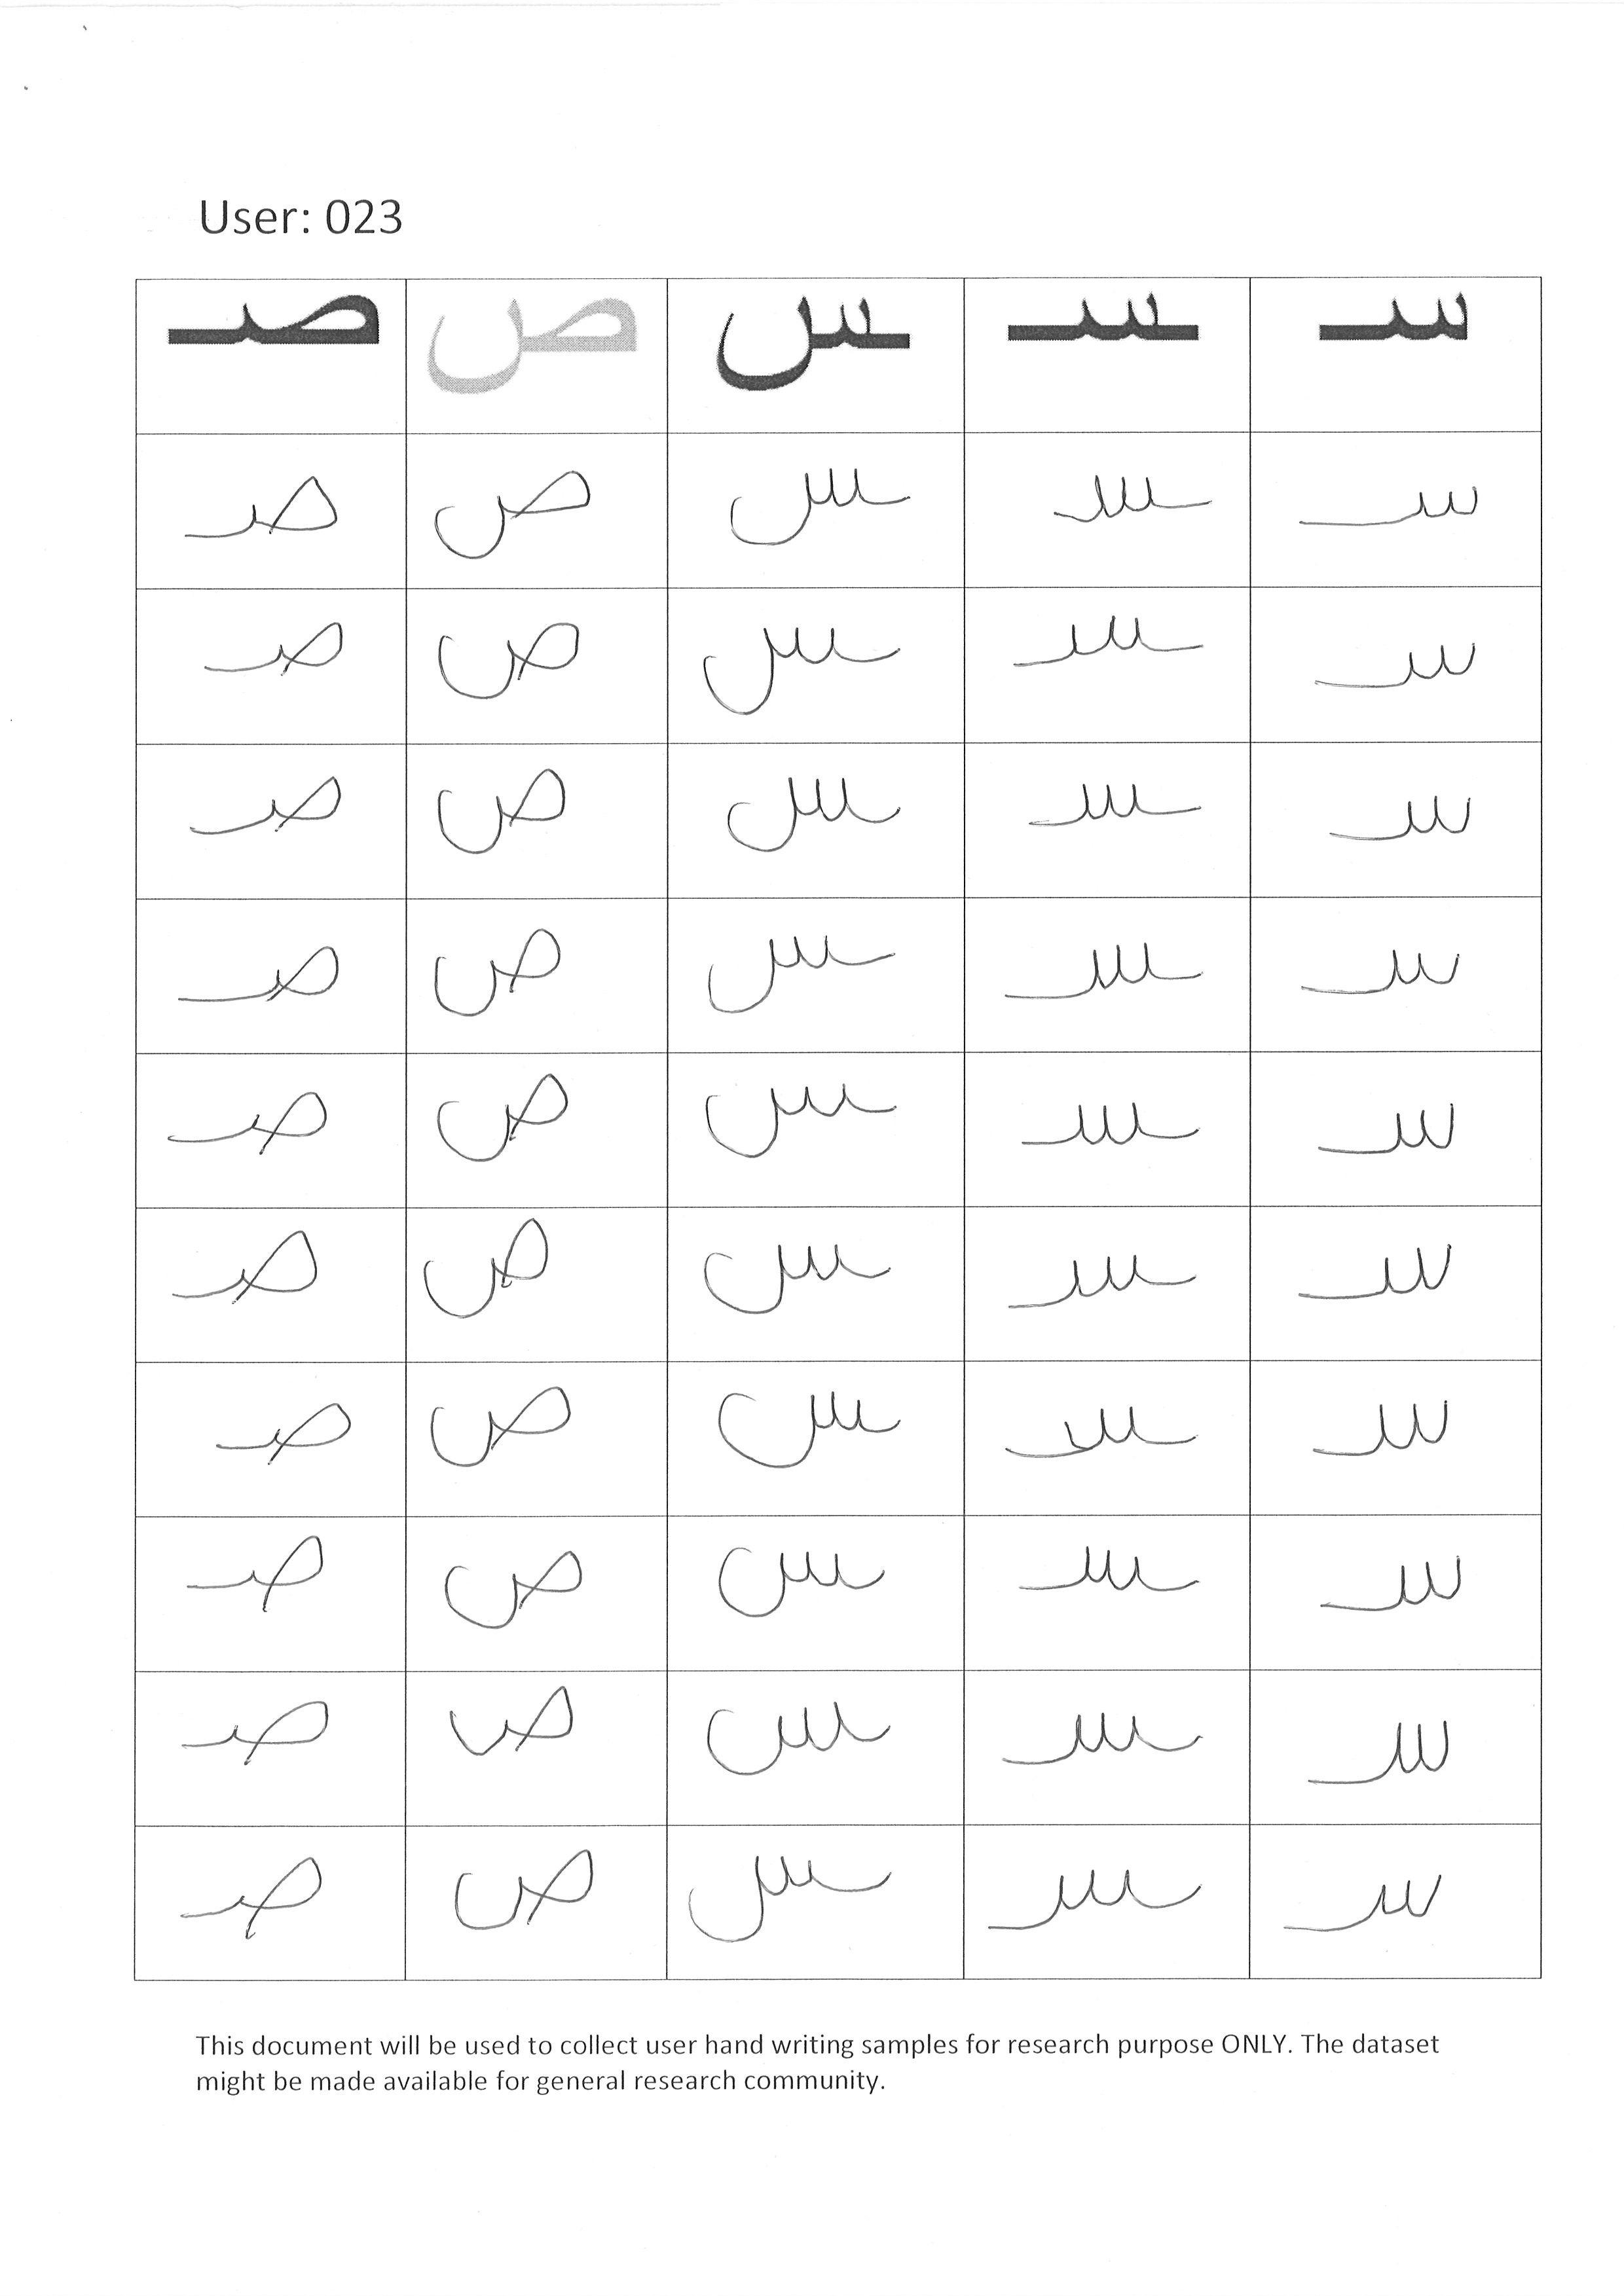 User: 023
سـ ـسـ ـس ص صـ
سـ ـسـ ـس ص صـ
سـ ـسـ ـس ص صـ
سـ ـسـ ـس ص صـ
سـ ـسـ ـس ص صـ
سـ ـسـ ـس ص صـ
سـ ـسـ ـس ص صـ
سـ ـسـ ـس ص صـ
سـ ـسـ ـس ص صـ
سـ ـسـ ـس ص صـ
سـ ـسـ ـس ص صـ
This document will be used to collect user hand writing samples for research purpose ONLY. The dataset
might be made available for general research community.